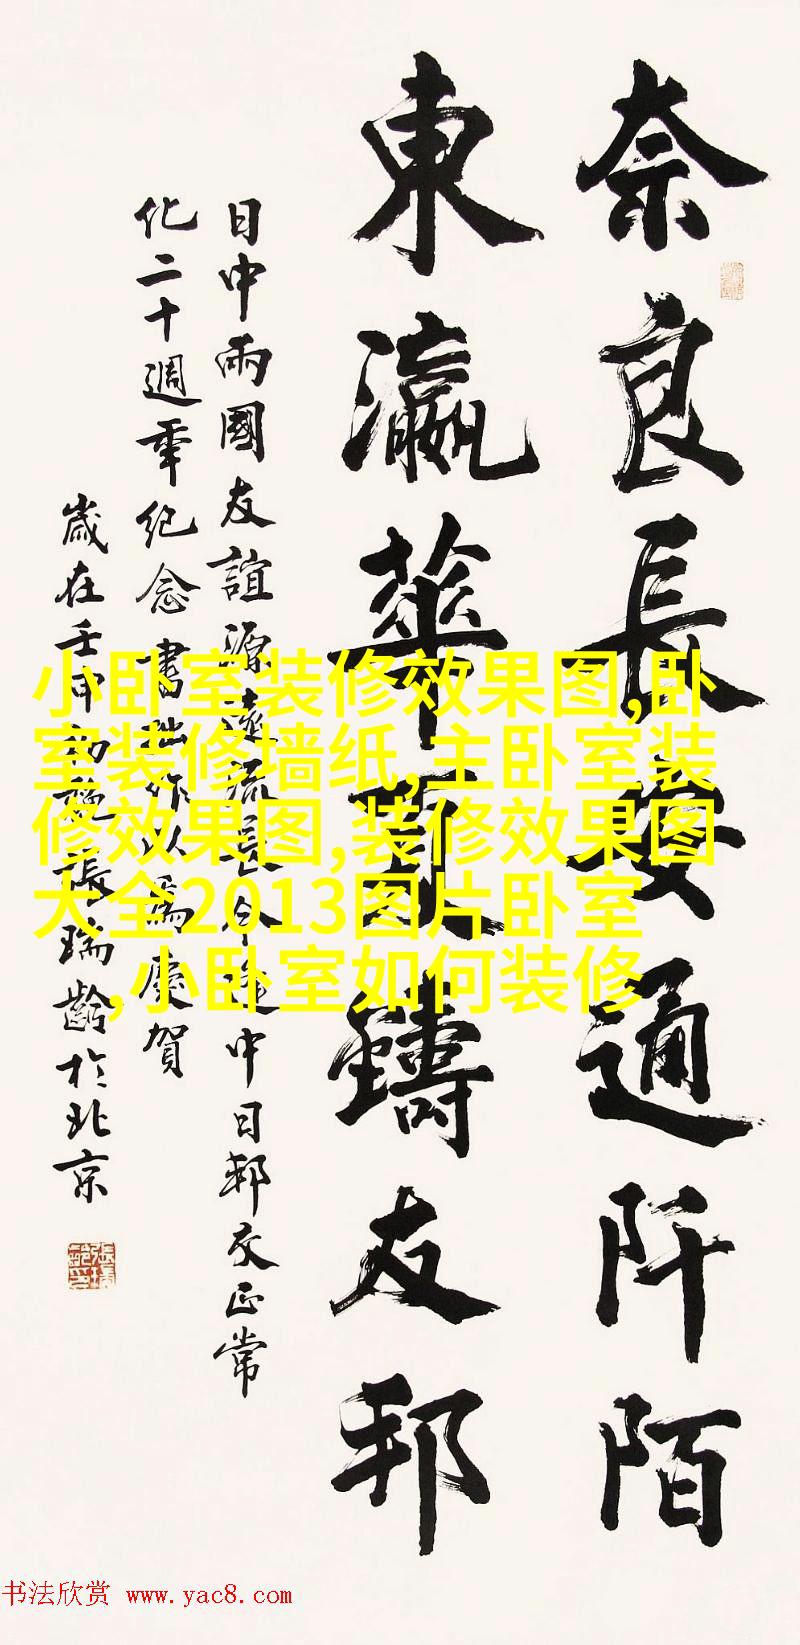 奈良長安通阡陌
東瀛華夏鑄友邦
日中兩國友誼源遠流長今逢中日邦交正常
化二十週年紀念書拙作以為慶賀
歲在壬申初範張瑞齡於北京
小卧室装修效果图,卧
室装修墙纸,主卧室装
修效果图,装修效果图
大全2013图片卧室
,小卧室如何装修
书法欣赏 www.yac8.com